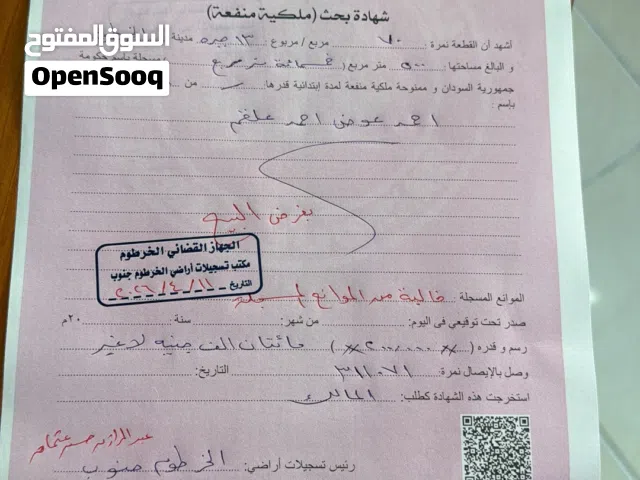 شهادة بحث (ملكية منفعة)
السوق المفتوح
OpenSooq
أشهد أن القطعة نمرة: ٧٠ مربع / مربوع ١٣ جبرة مدينة
و البالغ مساحتها: ٥٠٠ متر مربع ( خمسمائة متر مربع
جمهورية السودان و ممنوحة ملكية منفعة لمدة إبتدائية قدرها: من
بإسم:
احمد عوض احمد علقم
بغرض البيع
الجهاز القضائي الخرطوم
مكتب تسجيلات أراضي الخرطوم جنوب
التاريخ
الموانع المسجلة خالية من الموانع المسجلة
صدر تحت توقيعي في اليوم: من شهر: سنة ٢٠م
رسم و قدره (×× ٢٠٠,٠٠٠ ××) مائتان الف جنيه لاغير
وصل بالإيصال نمرة: ٣١١٠٧١ التاريخ:
استخرجت هذه الشهادة كطلب: المالك
رئيس تسجيلات أراضي: الخرطوم جنوب